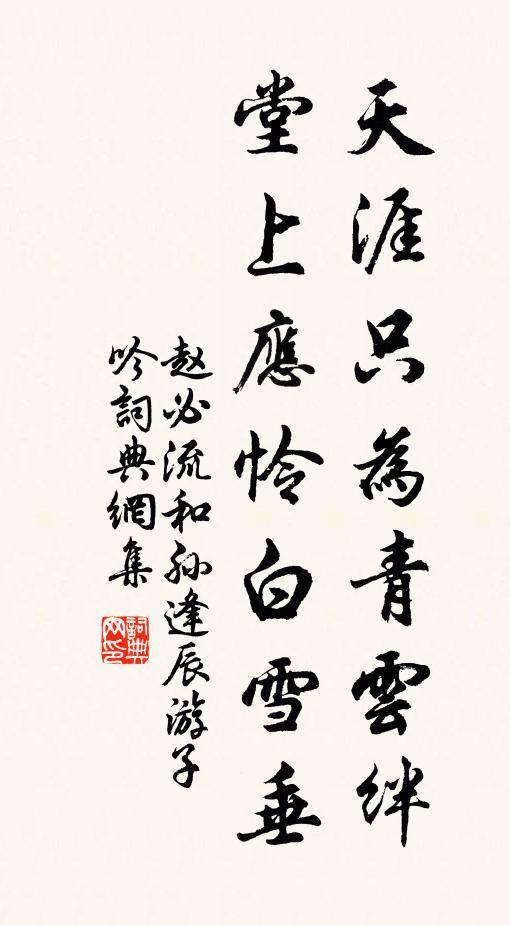 天涯只為青雲絆
堂上應怜白雪垂
赵必流和孙逢辰游子
吟詞典網集
詞典
网印